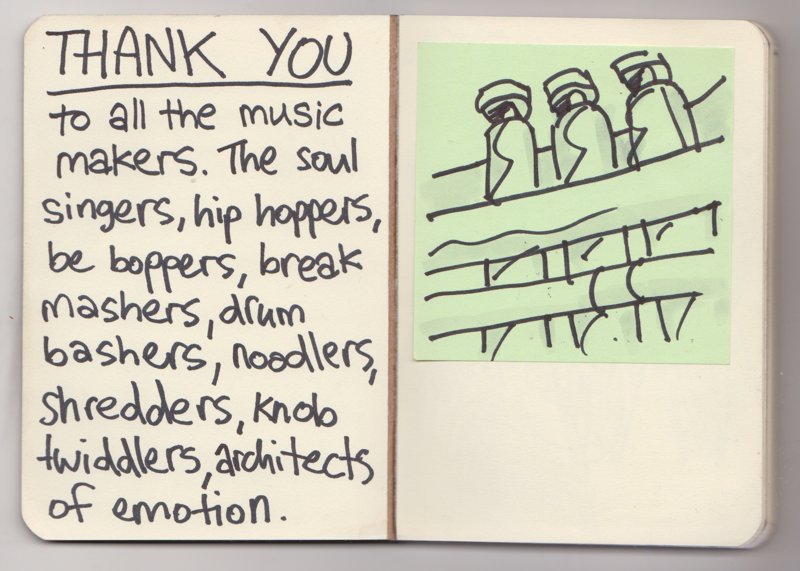 THANK YOU
to all the music
makers. The soul
singers, hip hoppers,
be boppers, break
mashers, drum
bashers, noodlers,
shredders, knob
twiddlers, architects
of emotion.